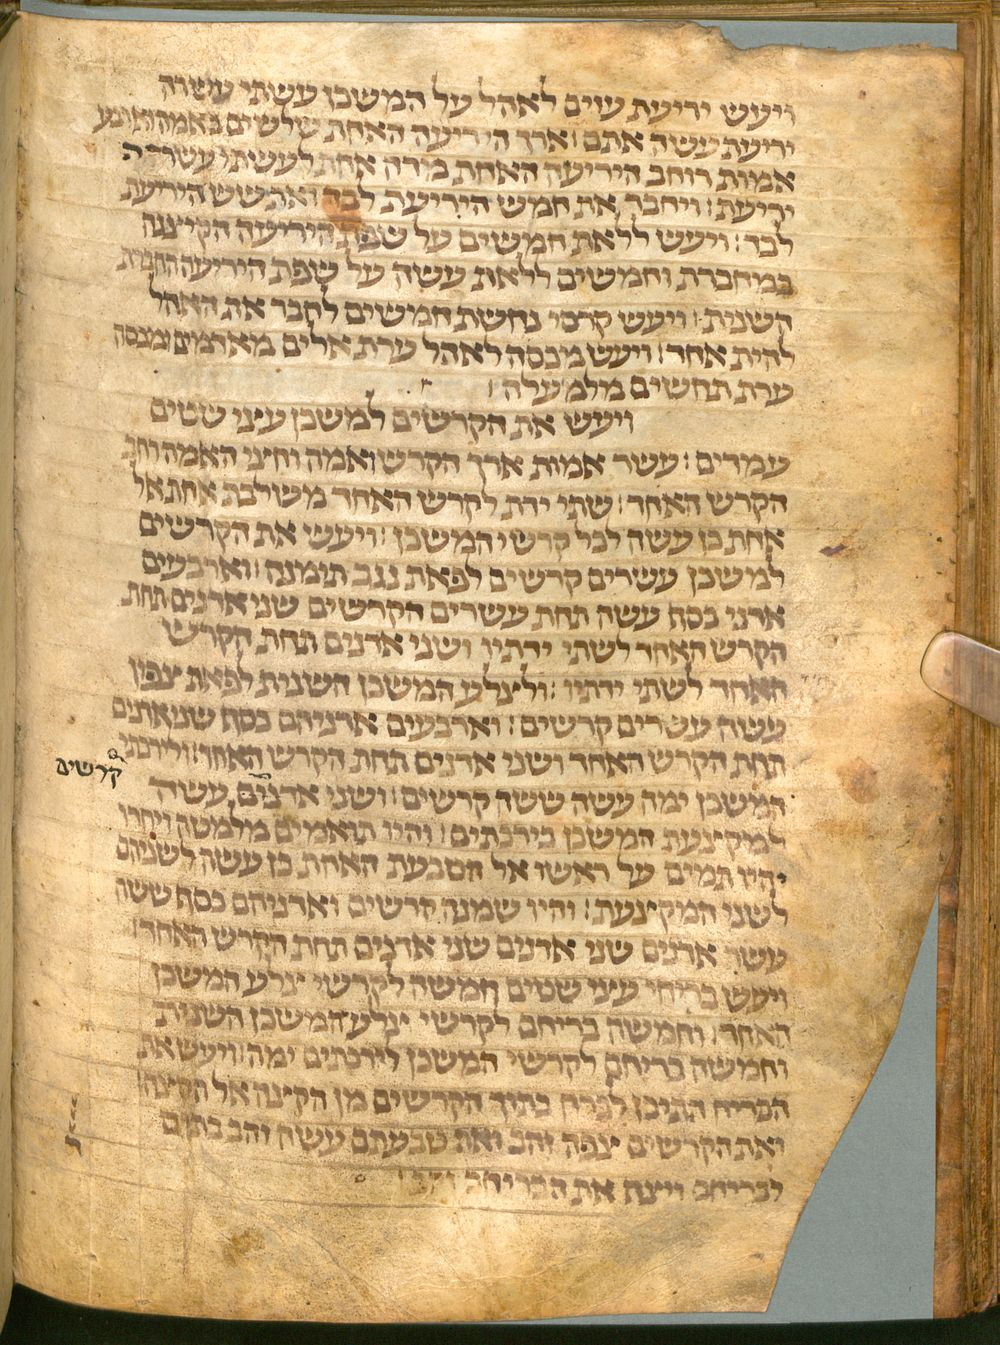 ויעש יריעת עזים לאהל על המשכן עשתי עשרה
יריעת עשה אתם : ארך היריעה האחת שלשים באמה וארבע
אמות רוחב היריעה האחת מידה אחת לעשתי עשרה
יריעת : ויחבר את חמש היריעת לבד ואת שש היריעת
לבד : ויעש ללאת חמשים על שפת היריעה הקיצנה
במחברת וחמשים ללאת עשה על שפת היריעה החברת
השנית : ויעש קרסי נחשת חמישים לחבר את האהל
להית אחד : ויעש מכסה לאהל ערת אלים מאדמים ומכסה
ערת תחשים מלמעלה :
ויעש את הקרשים למשכן עיצי שטים
עמדים : עשר אמות ארך הקרש ואמה וחצי האמה רחב
הקרש האחד : שתי ידת לקרש האחד משולבת אחת אל
אחת כן עשה לכל קרשי המשכן : ויעש את הקרשים
למשכן עשרים קרשים לפאת נגב תימנה : וארבעים
אדני כסף עשה תחת עשרים הקרשים שני אדנים תחת
הקרש האחד לשתי ידתיו ושני אדנים תחת הקרש
האחד לשתי ידתיו : ולצלע המשכן השנית לפאת צפון
עשה עשרים קרשים : וארבעים אדניהם כסף שני אדנים
תחת הקרש האחד ושני אדנים תחת הקרש האחד : ולירכתי
המשכן ימה עשה ששה קרשים : ושני אדנים עשה
קרשים
למקיצעת המשכן בירכתים : והיו תואמים מלמטה ויחדו
יהיו תמים על ראשו אל הטבעת האחת כן עשה לשניהם
לשני המקיצעת : והיו שמנה קרשים ואדניהם כסף ששה
עשר אדנים שני אדנים שני אדנים תחת הקרש האחד :
ויעש בריחי עיצי שטים חמשה לקרשי צלע המשכן
האחד : וחמשה בריחם לקרשי צלע המשכן השנית
וחמישה בריחם לקרשי המשכן לירכתים ימה : ויעש את
הבריח התיכן לברח בתוך הקרשים מן הקיצה אל הקיצה :
ואת הקרשים צפה זהב ואת טבעתם עשה זהב בתים
לבריחם ויצף את הבריחם זהב :